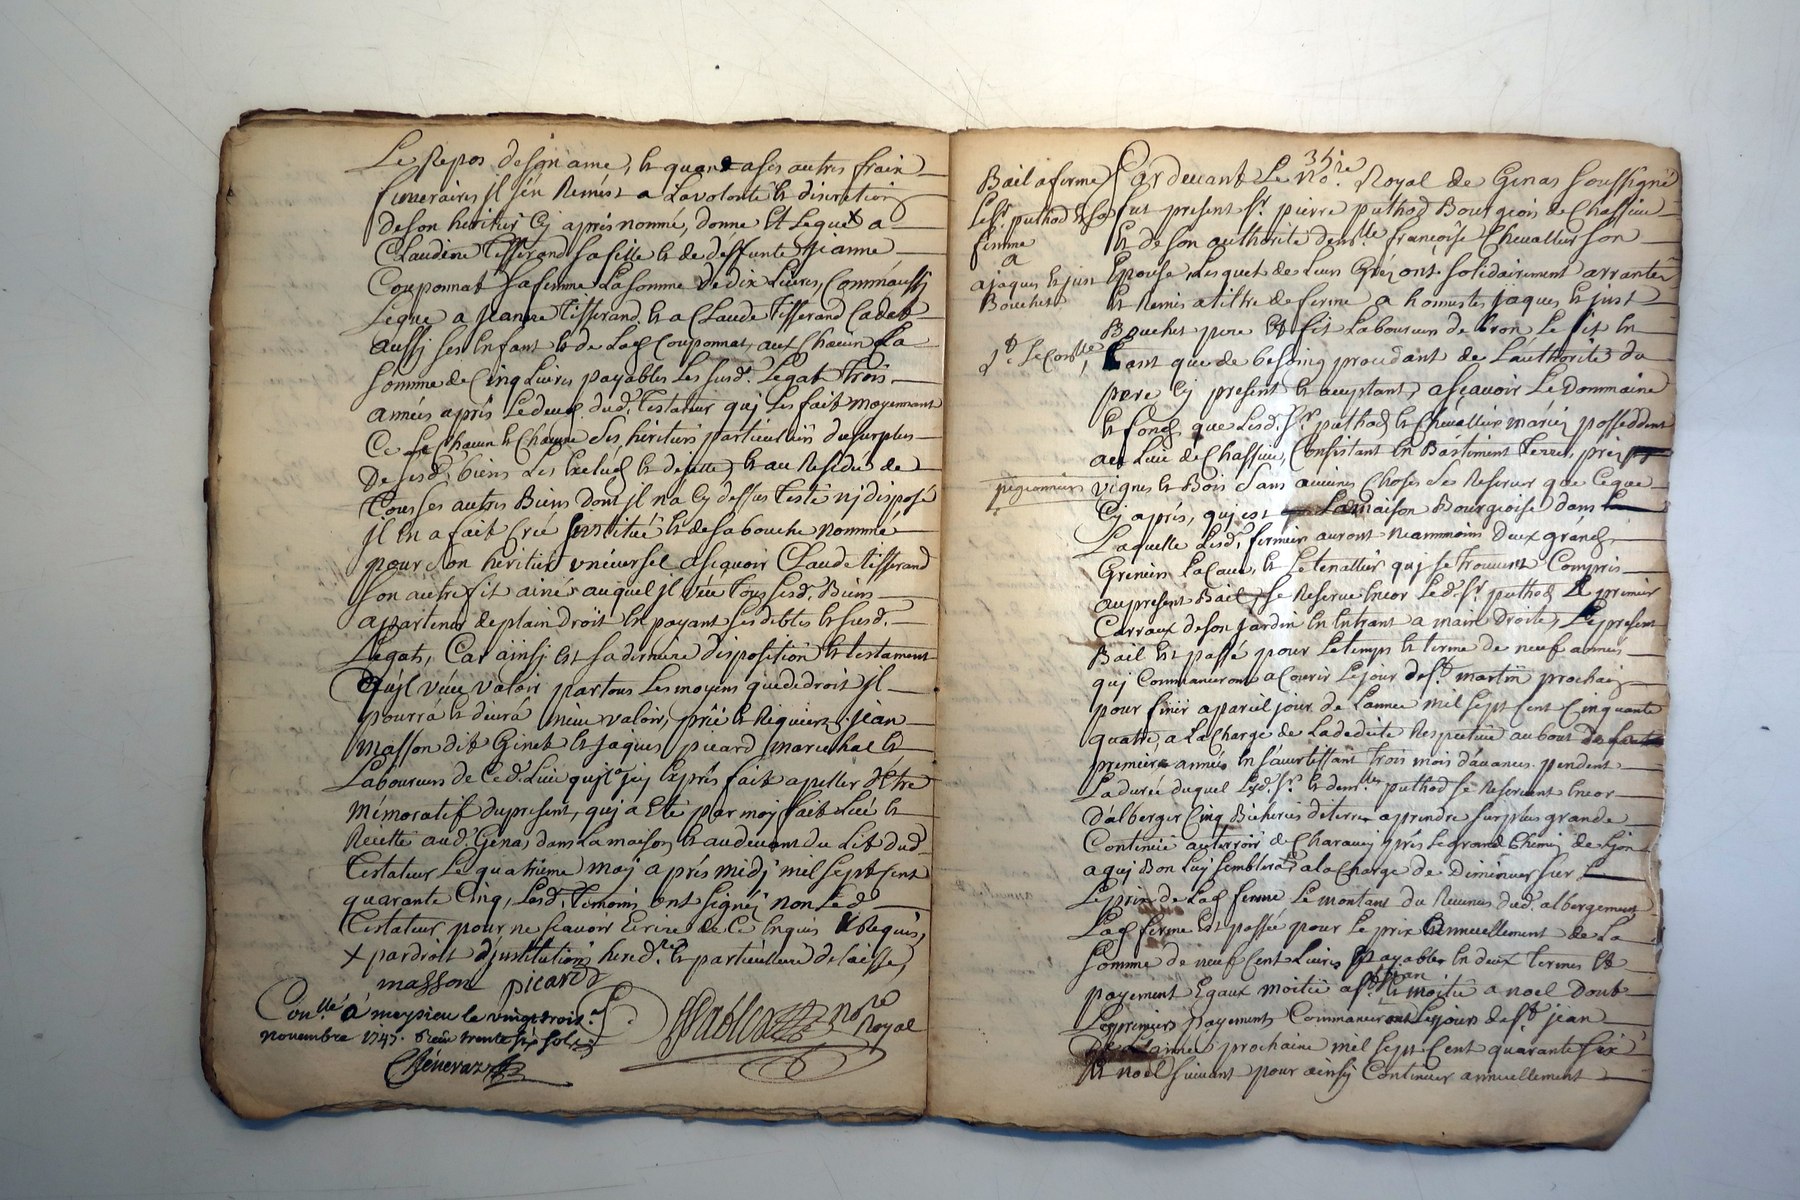 Le Repos de son ame, et quand a ses autres fraix
funeraires il s'en Remest a La volonté et discretion
de son heritier Cy aprés nommé, donne et Legue a
Claudine Tisserand sa fille et de deffunte Jeanne
Couponnat sa femme La somme de dix Livres, Comm'aussj
Legue a Jeanne Tisserand, et a Claude Tisserand Cadet
aussj ses Enfant et de Lad Couponnat, aux Chacun La
somme de Cinq Livres payables Les susd. Legats trois
années aprés Le deces dud. Testateur quj Les fait moyennant
Ce Le Chacun et Chacune ses heritiers particuliers du surplus
De sesd. biens Les Exclud et dejette, et au Residu de
Tous ses autres Biens dont jl n'a Cy dessus Testé nj disposé
jl en a fait Créé jnstitué et de sa bouche Nommé
pour son heritier vniversel asçavoir Claude tisserand
son autre fit ainé auquel jl veut Tous sesd. Biens
apartenir de plain droit en payant ses debtes et susd.
Legats, Car ainsj est sa derniere disposition et testament
Qu'jl veut valoir par tous Les moyens que de droit jl
pourrá et devrá mieux valoir, prié et Requierz jean
masson dit Ginet et jaques picard marechal et
Laboureurs de Ce d. Lieu qu'jl a jcy Exprés fait apeller d'être
mémoratif du present, quj a Eté par moy fait Lëu et
Recitté aud. Genas dans La maison et au devant du Lit dud
Testateur Le quatrieme may aprés midj mil sept Cent
quarante Cinq, Lesd. Temoins ont signéz non Led
Testateur pour ne sçavoir Ecrire de Ce Enquis et Requis,
X par droit d'jnstitution hered.re et particuliere delaisse
masson picard
Con.llé á meyzieu le vingt trois.e
novembre 1745. Receu trente six sols
Chéneraz
No.re Royal
35
Bail a ferme
Le S.r puthod et sa
femme
a
a jaques et just
Bouchet
Par devant Le No.re Royal de Genas soussigné
fut present S.r pierre puthod Bourgeois de Chassieu
et de son authorité dem.lle francoise Chevallier son
Epouse, Lesquel de Leurs Gréz ont solidairement arrantéz
et Remis a tittre de ferme a honnestes jaques et just
Bouchet pere et fit Laboureurs de bron Le fit en
tant que de besoing procedant de L'authorité du
pere Cy present et acceptant, asçavoir Le Dommaine
et fonds que Lesd. S.r puthod et Chevallier mariéz possedent
au Lieu de Chassieu, Consistant en Bastiment Terres, préz
pigeonniers
vignes et Bois sans aucunes Choses se Reserver que Ce que
Cy aprés, quj est La maison Bourgeoise dans
Laquelle Lesd. fermiers auront neammoins deux grands
Greniers La Cave, et Le tenallier quj se trouvent Compris
au present Bail, se Reserve Encor Led. S.r puthod Le premier
Carraux de son jardin en Entrant a main droite, Le present
Bail est passé pour Le temps et terme de neuf années
quj Commanceront a Courir Le jour de S.t martin prochain
pour finir a pareil jour de L'année mil sept Cent Cinquante
quatre, a La Charge de La dedite Respective au bout
premieres années En s'avertissant Trois mois d'avances. pendent
La durée duquel Lesd. S.r et dem.lle puthod se Reservent Encor
D'alberger Cinq Bicherées de terre a prendre sur plus grande
Continüe au terroir de Charavey prés Le grand Chemin de Lyon
a quj Bon Luy semblera, a La Charge de Diminuer sur
Le prix de Lad ferme Le montant du Revenus dud. albergement
Lad ferme Est passée pour Le prix Ennuellement de La
somme de neuf Cent Livres Payables En deux Termes et
payement Egaux moitié a S.t jean et moitié a noel dont
Le premiers payements Commancera Le jour de S.t jean
De L'année prochaine mil sept Cent quarante six
Et noel suivant pour ainsy Continuer annuellement